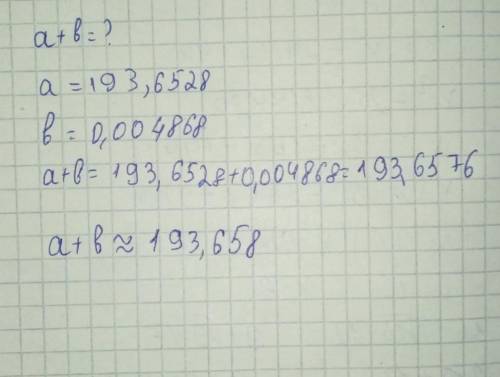 a+b=?
a=193,6528
b=0,004868
a+b= 193,6528+0,004868=193,6576
a+b≈193,658